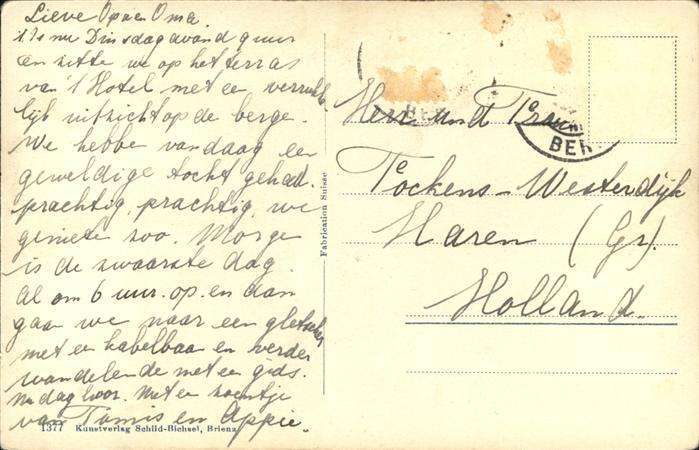 Lieve Opa en Oma.
't Is nu Dinsdagavond 9 uur
en zitte we op het terras
van 't Hotel met een verruk-
lijk uitzicht op de berge.
We hebbe vandaag een
geweldige tocht gehad.
prachtig, prachtig, we
geniete zoo. Morge
is de zwaarste dag.
Al om 6 uur op en dan
gaan we naar een gletscher
met een kabelbaan en verder
wandelende met een gids.
Nu dag hoor. Met een zoentje
van Tomis en Appie.
1377 Kunstverlag Schild-Bichsel, Brienz
Fabrication Suisse
BER
Herr und Frau
Tockens-Westerdijk
Haren (Gr).
Holland.